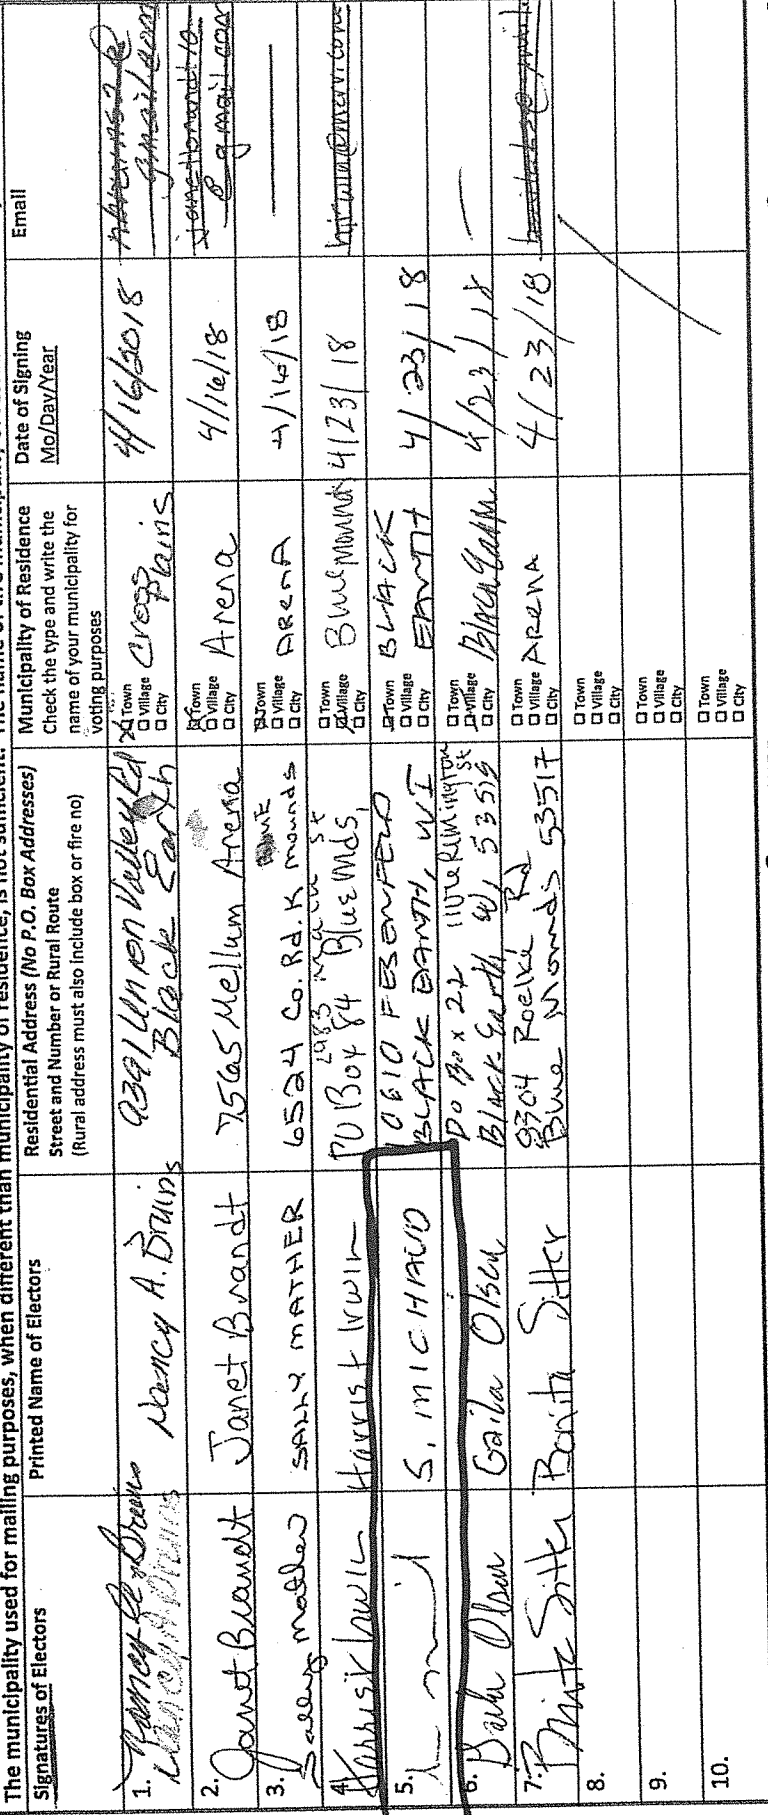 The municipality used for mailing purposes, when different than municipality of residence, is not sufficient.
Signatures of Electors
Printed Name of Electors
Residential Address (No P.O. Box Addresses)
Street and Number or Rural Route
(Rural address must also include box or fire no)
Municipality of Residence
Check the type and write the
name of your municipality for
voting purposes
Date of Signing
Mo/Day/Year
Email
1.
Nancy A. Bruins
9391 Union Valley Rd
Black Earth
Town
Village
City
Cross
Plains
4/16/2018
gmail.com
2.
Janet Brandt
Janet Brandt
7565 Mellum Arena
Town
Village
City
Arena
4/16/18
gmail.com
3.
Sally Mather
SALLY MATHER
6524 Co. Rd. K Mounds
Town
Village
City
ARENA
4/16/18
4.
Harriet Irwin
Harriet Irwin
2983 Main St
PO Box 84 Blue Mds,
Town
Village
City
Blue Mounds
4/23/18
5.
S. MICHAUD
0610 FESENFELD
BLACK EARTH, WI
Town
Village
City
BLACK
EARTH
4/23/18
6.
Olson
Gaila Olsen
PO Box 22 1107 E Remington St
Black Earth WI 53515
Town
Village
City
Black Earth
4/23/18
7.
Sitter
Bonita Sitter
9304 Roelke Rd
Blue Mounds 53517
Town
Village
City
ARENA
4/23/18
8.
Town
Village
City
9.
Town
Village
City
10.
Town
Village
City